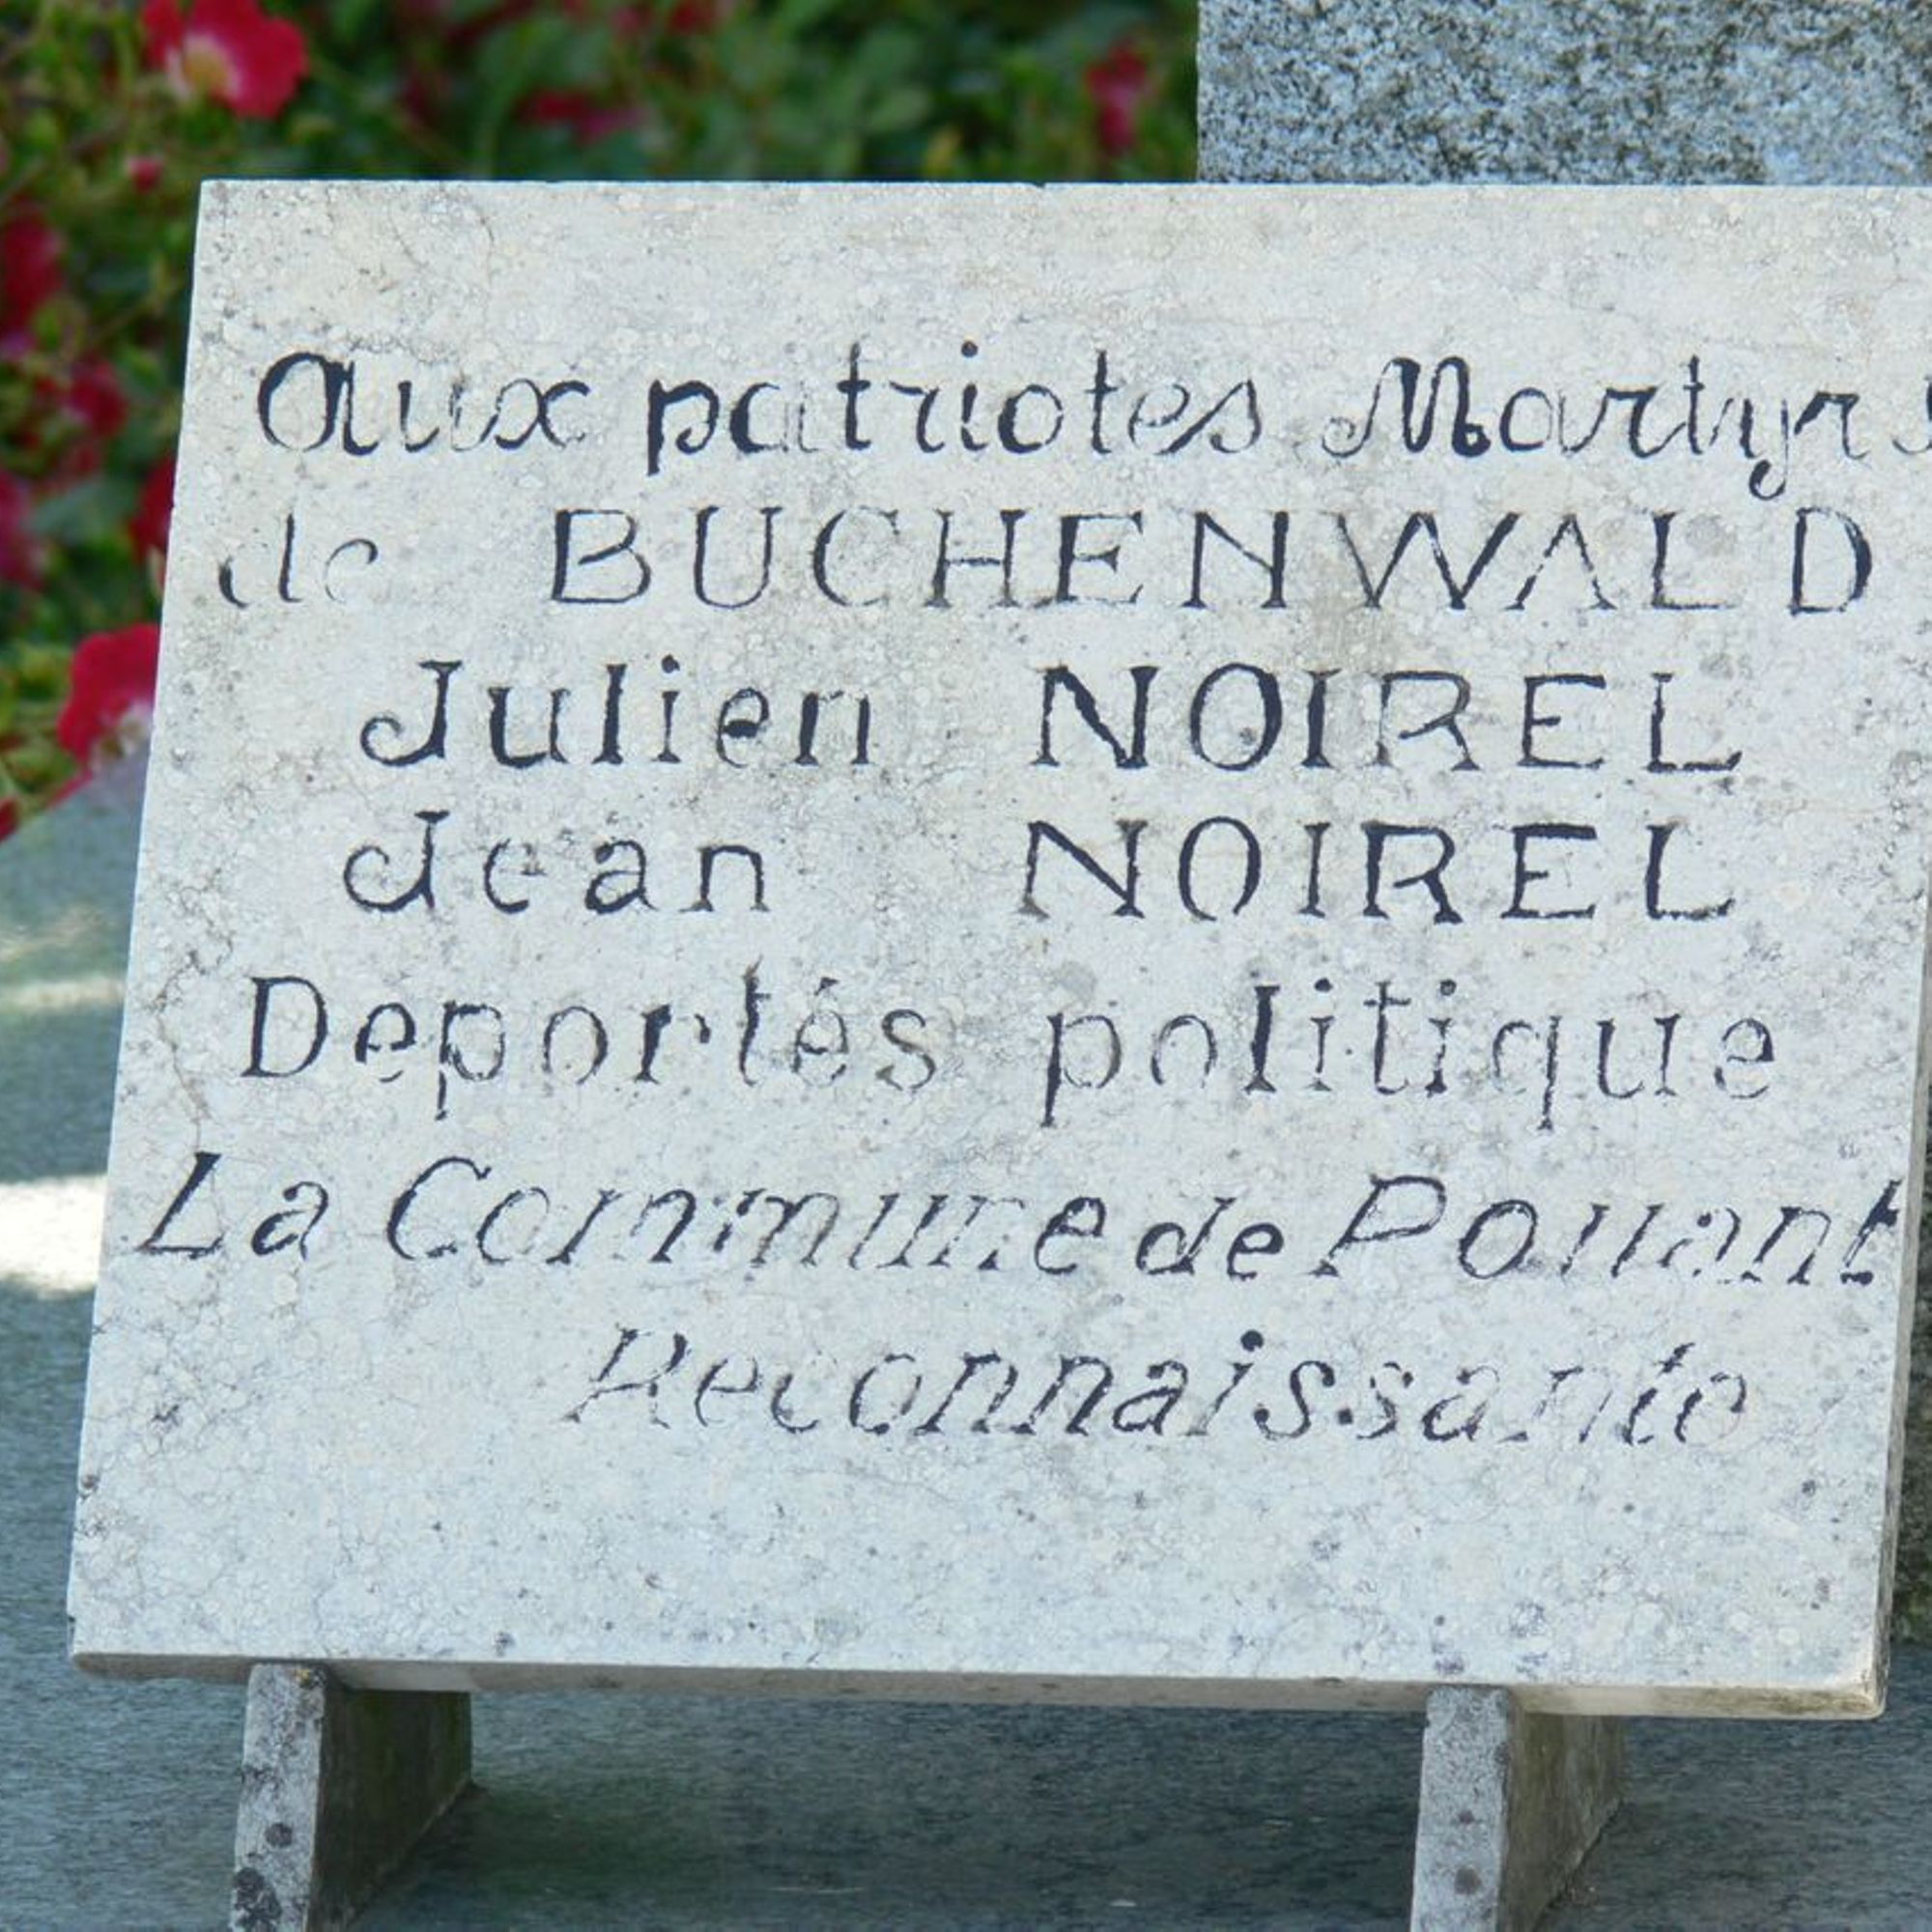 Aux patriotes Martyrs
de BUCHENWALD
Julien NOIREL
Jean NOIREL
Deportés politique
La Commune de Pouant
Reconnaissante